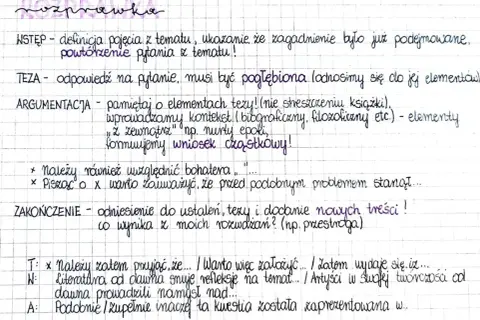 rozprawka
WSTĘP - definicja pojęcia z tematu, ukazanie, że zagadnienie było już podejmowane,
powtórzenie pytania z tematu!
TEZA - odpowiedź na pytanie, musi być pogłębiona (odnosimy się do jej elementów)
ARGUMENTACJA - pamiętaj o elementach tezy! (nie streszczeniu książki),
wprowadzamy kontekst (biograficzny, filozoficzny etc.) - elementy
"z zewnątrz" np. nurty epoki,
formujemy wniosek cząstkowy!
× Należy również uwzględnić bohatera „ "...
× Pisząc o x warto zauważyć, że przed podobnym problemem stanął...
ZAKOŃCZENIE - odniesienie do ustaleń, tezy i dodanie nowych treści!
co wynika z moich rozważań? (np. przestroga)
T: × Należy zatem przyjąć, że... / Warto więc założyć... / Zatem wydaje się, iż...
W: Literatura od dawna snuje refleksje na temat... / Artyści w swojej twórczości od
dawna prowadzili namysł nad...
A: Podobnie / zupełnie inaczej ta kwestia została zaprezentowana w...